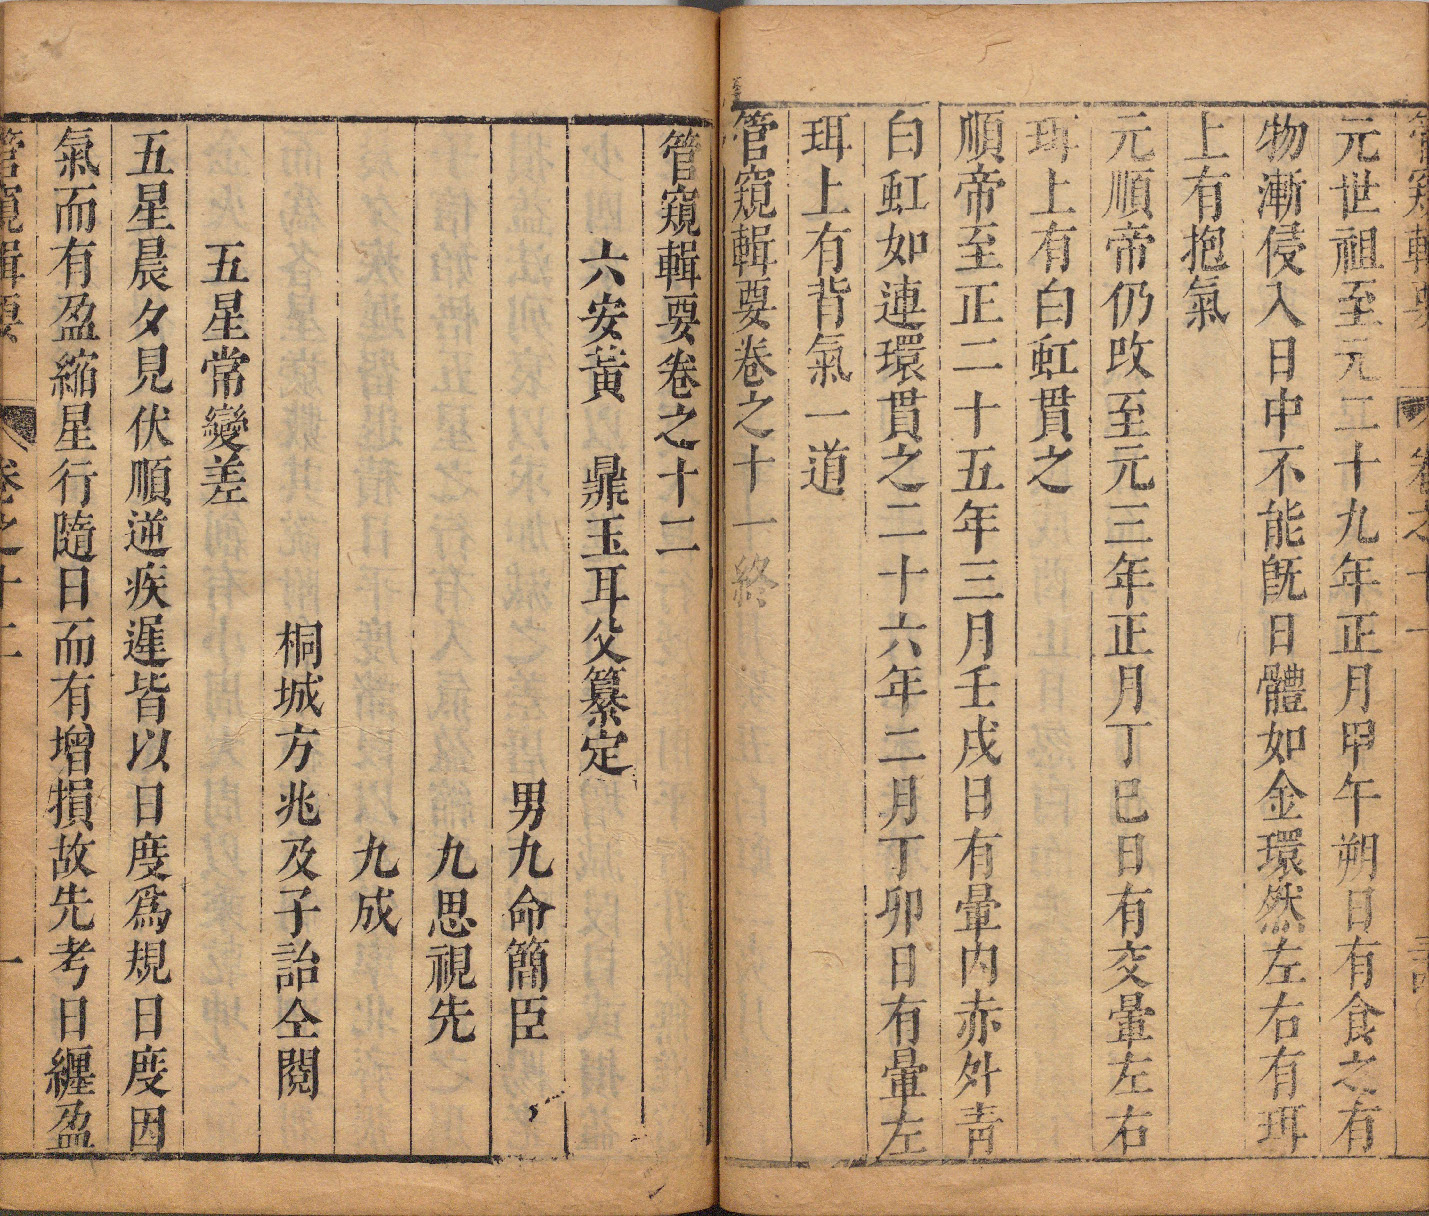 管窺輯要
卷之十一
元世祖至元二十九年正月甲午朔日有食之有
物漸侵入日中不能旣日體如金環然左右有珥
上有抱氣
元順帝仍改至元三年正月丁巳日有交暈左右
珥上有白虹貫之
順帝至正二十五年三月壬戌日有暈内赤外青
白虹如連環貫之二十六年二月丁卯日有暈左
珥上有背氣一道
管窺輯要卷之十一終
管窺輯要卷之十二
六安黃 鼎玉耳父纂定
男九命簡臣
九思視先
九成
桐城方兆及子詒仝閱
五星常變差
五星晨夕見伏順逆疾遲皆以日度爲規日度因
氣而有盈縮星行隨日而有增損故先考日纏盈
管窺輯要
卷之十二
一